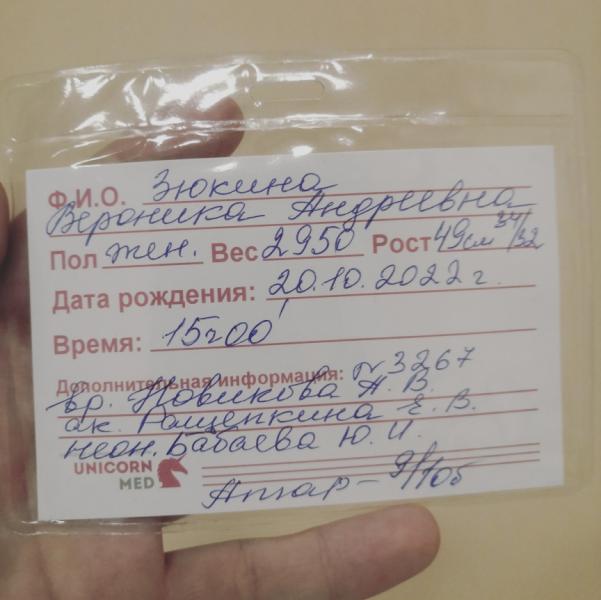 Ф.И.О. Зюкина
Вероника Андреевна
Пол жен. Вес 2950 Рост 49см 34/32
Дата рождения: 20.10.2022 г.
Время: 15ч00'
Дополнительная информация: № 3267
вр. Новикова А. В.
ак. Ращепкина Е. В.
неон. Бабаева Ю. И.
UNICORN
MED
Апгар – 9/10б